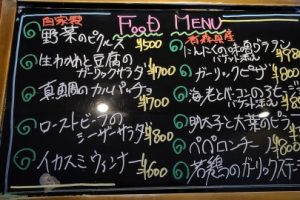 FOOD MENU
自家製
野菜のピクルス ¥500
生わかめと豆腐の
ガーリックサラダ ¥700
真鯛のカルパッチョ
¥700
ローストビーフの
シーザーサラダ ¥800
イカスミウィンナー
¥600
青森県産
にんにくの味噌
バケット
¥900
ガーリックピザ
¥900
海老とベーコンの
¥800
明太子と大葉のピラフ
¥800
ペペロンチーノ
¥800
若鶏のガーリックステー